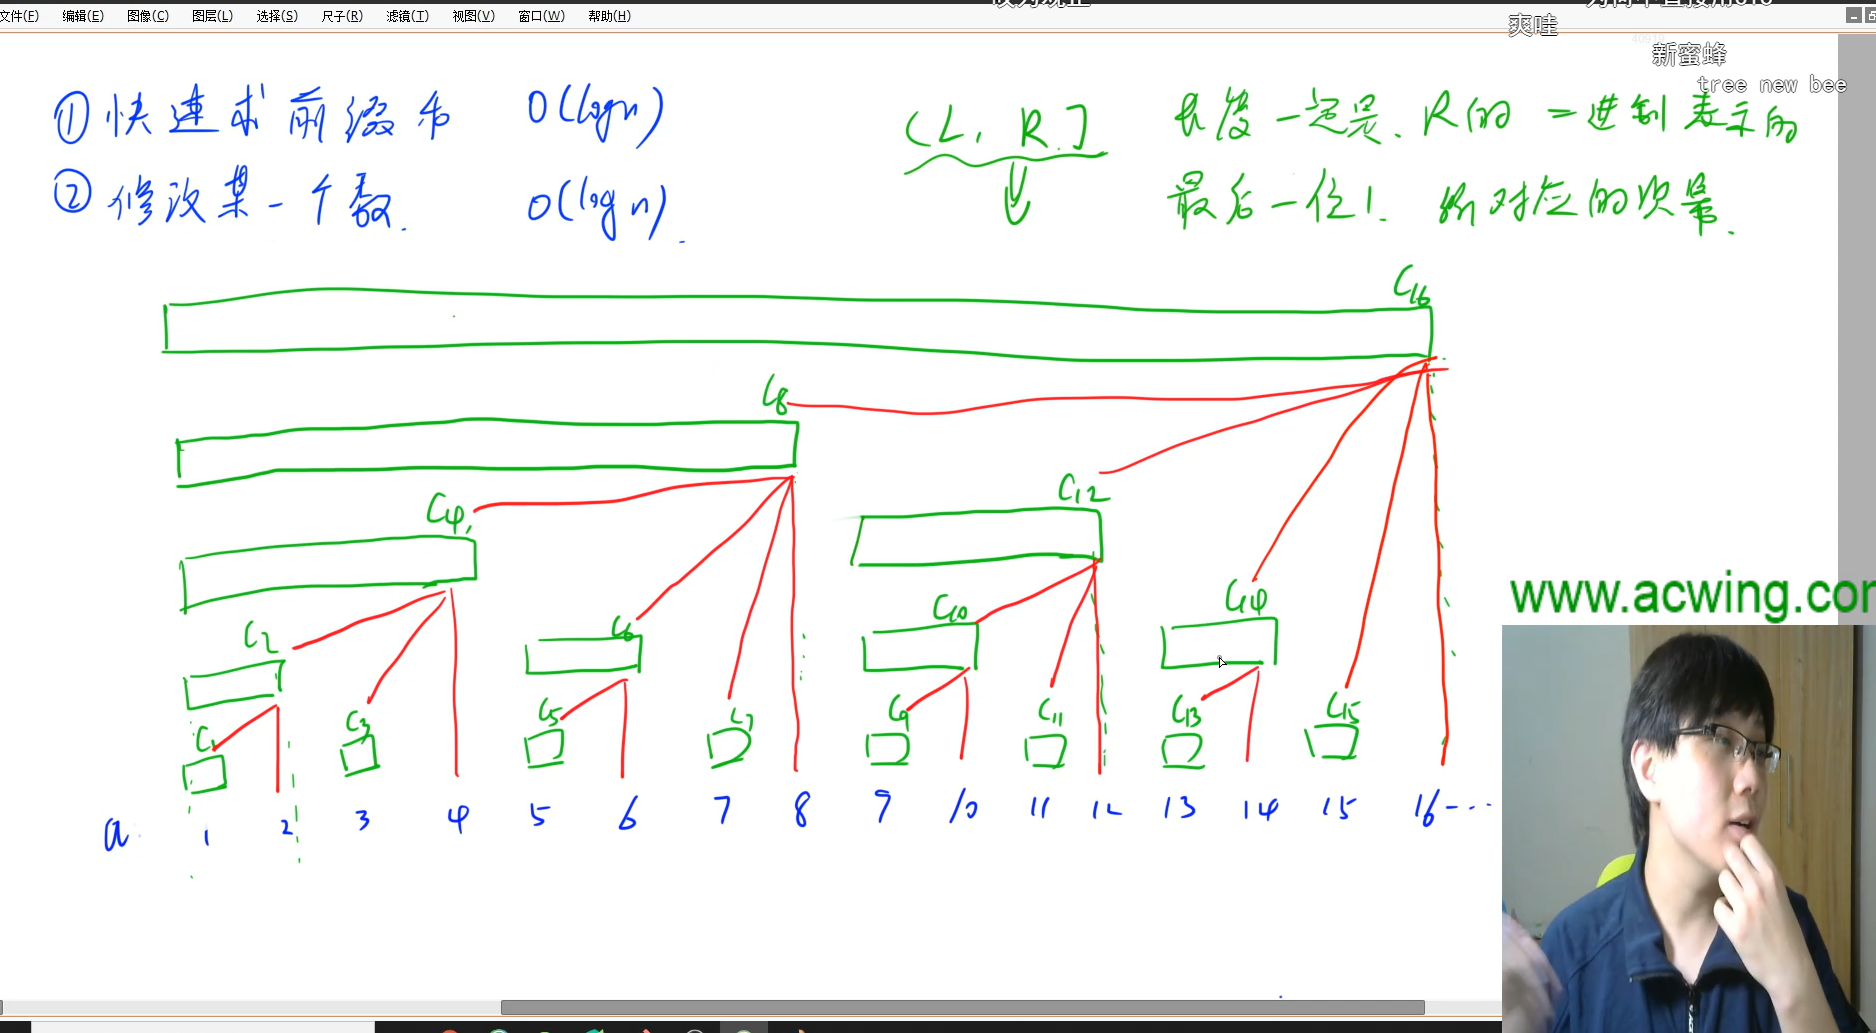 文件(F) 编辑(E) 图像(C) 图层(L) 选择(S) 尺子(R) 滤镜(T) 视图(V) 窗口(W) 帮助(H)
爽哇
新蜜蜂
tree new bee
① 快速求前缀和 O(logn)
② 修改某一个数. O(logn).
(L, R]
长度一定是. R的二进制表示的
最后一位1. 所对应的次幂.
C16
C8
C4
C12
C2
C6
C10
C14
C1 C3 C5 C7 C9 C11 C13 C15
a: 1 2 3 4 5 6 7 8 9 10 11 12 13 14 15 16 ...
www.acwing.com